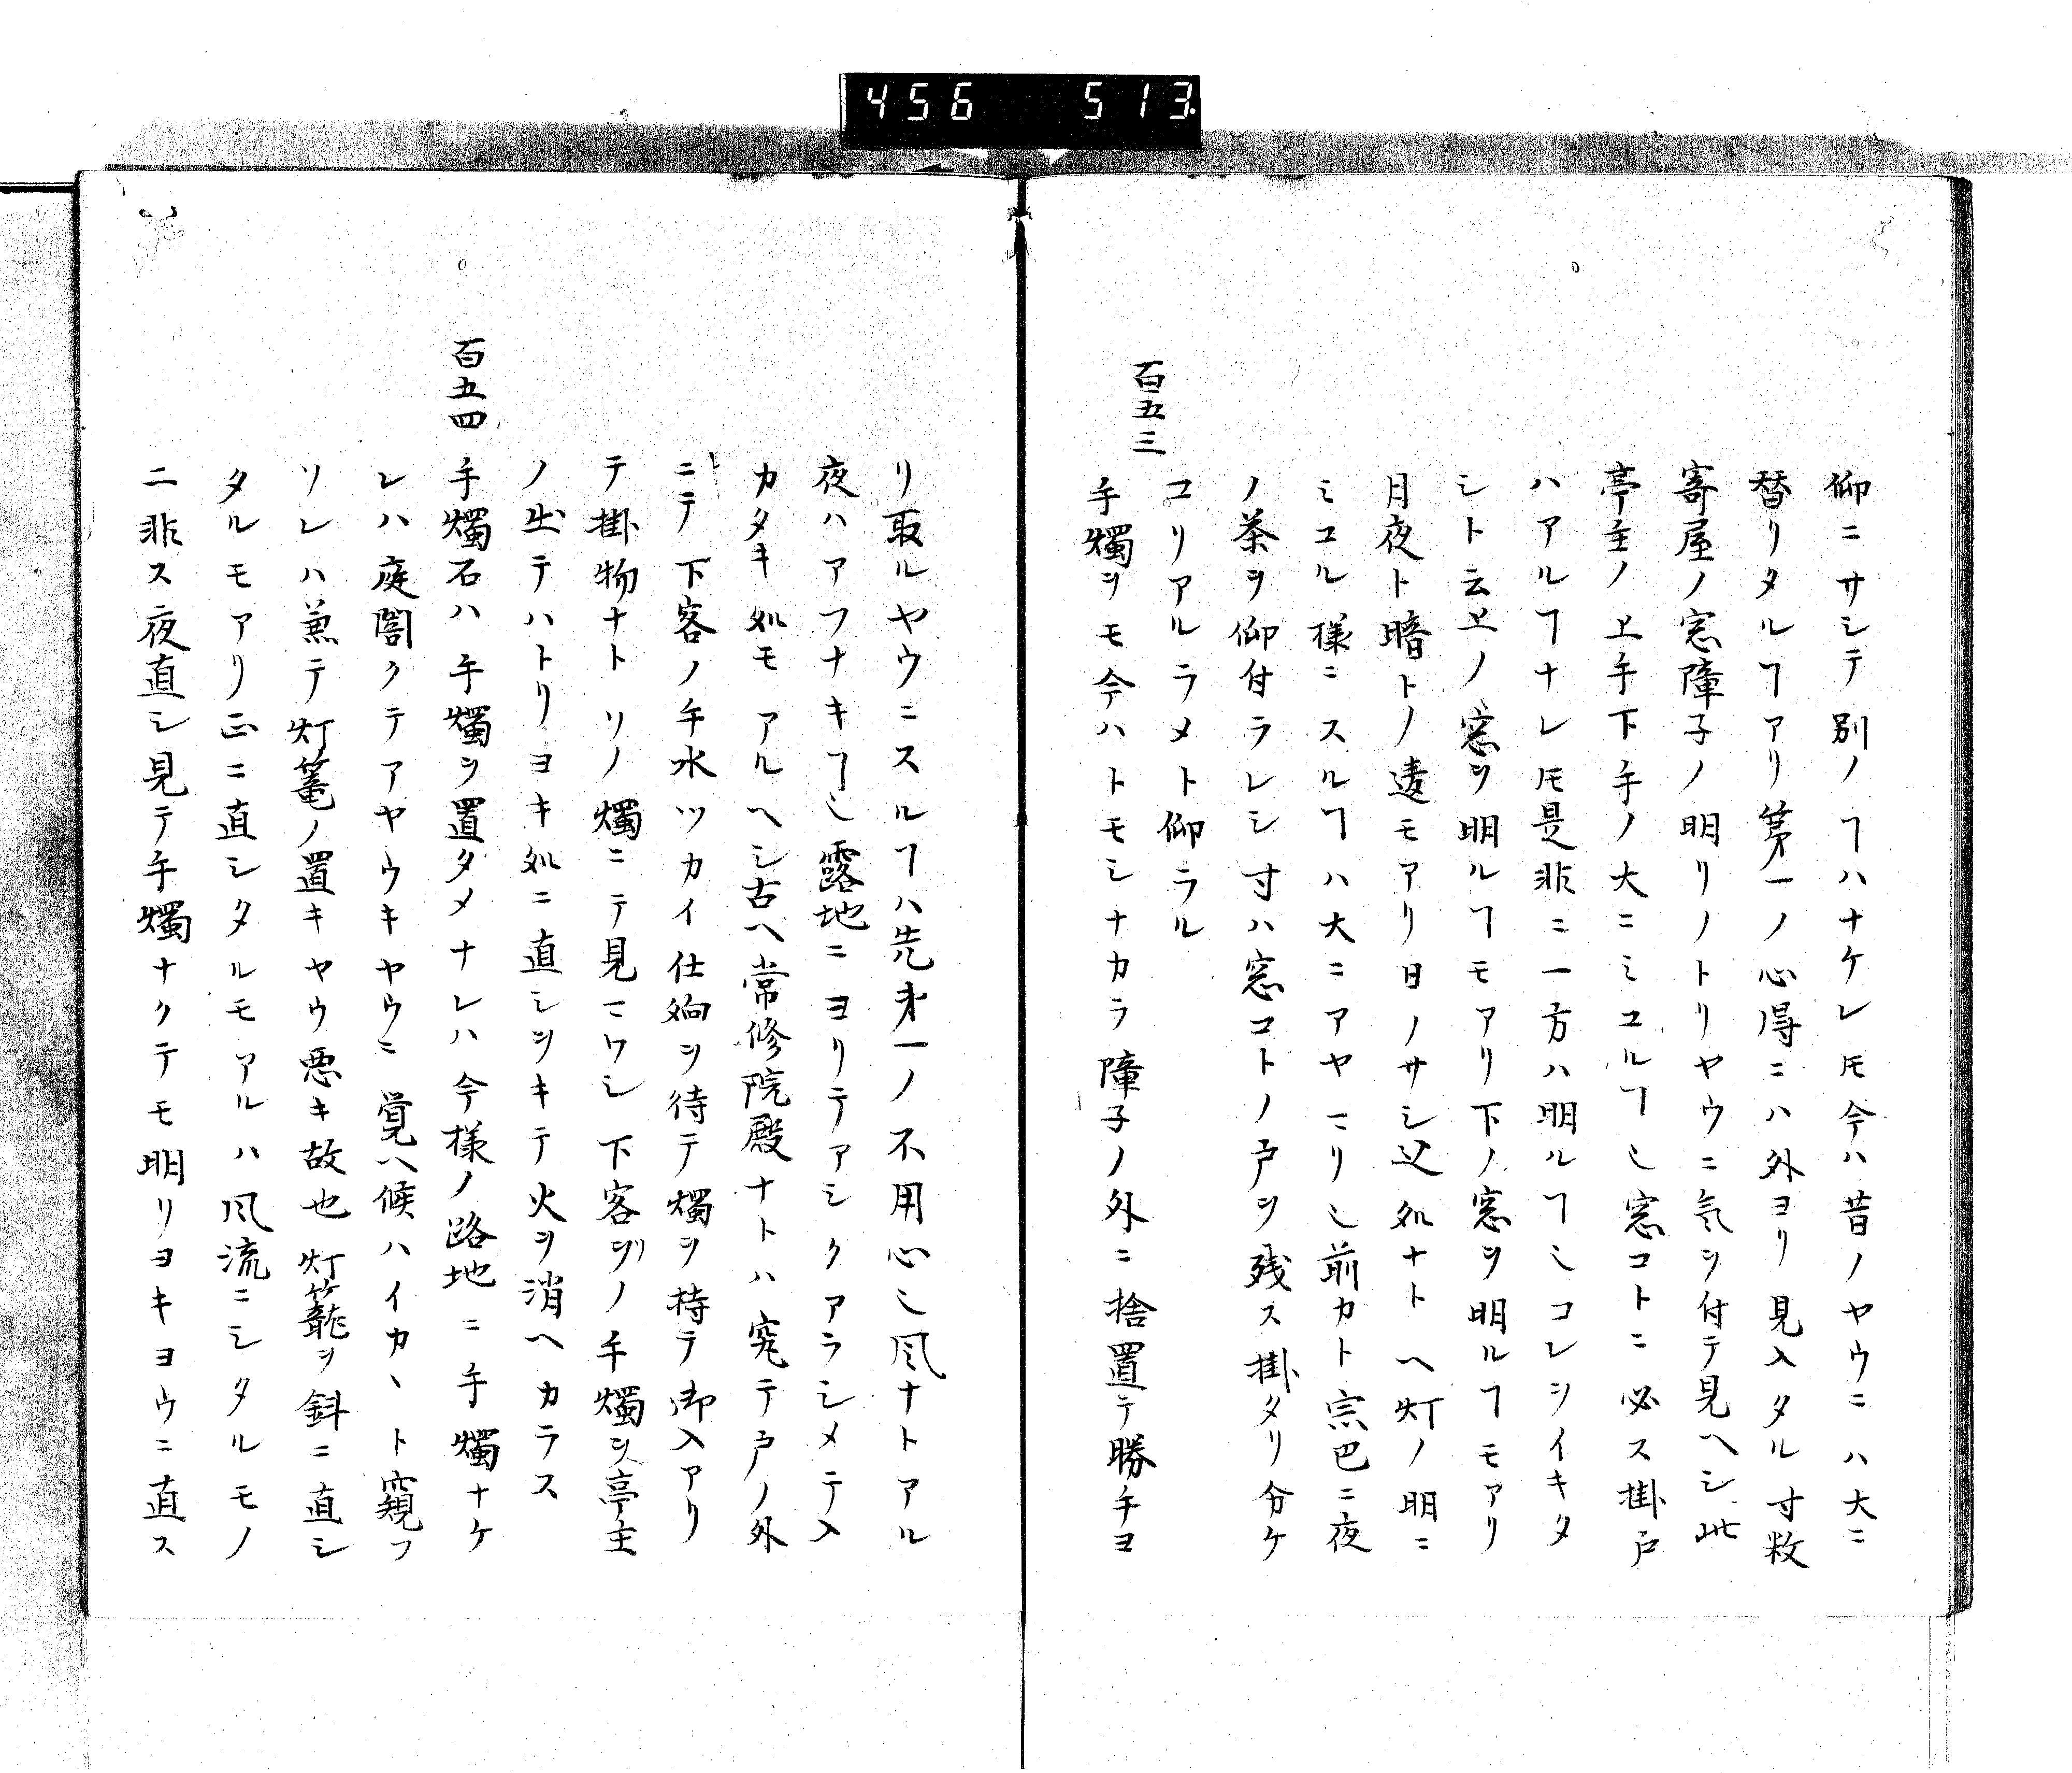 456 513.
仰ニサシテ別ノヿハナケレ𪜈今ハ昔ノヤウニハ大ニ
替リタルヿアリ第一ノ心得ニハ外ヨリ見入タル寸数
寄屋ノ窓障子ノ明リノトリヤウニ気ヲ付テ見ヘシ此
亭主ノ上手下手ノ大ニミユルヿ也窓コトニ必ス掛戸
ハアルヿナレ𪜈是非ニ一方ハ明ルヿ也コレヲイキタ
シト云上ノ窓ヲ明ルヿモアリ下ノ窓ヲ明ルヿモアリ
月夜ト暗トノ違モアリ日ノサシ込処ナトヘ灯ノ明ニ
ミユル様ニスルヿハ大ニアヤマリ也前カト宗巴ニ夜
ノ茶ヲ仰付ラレシ寸ハ窓コトノ戸ヲ残ス掛タリ分ケ
コリアルラメト仰ラル
百五三
手燭ヲモ今ハトモシナカラ障子ノ外ニ捨置テ勝手ヨ
リ取ルヤウニスルヿハ先第一ノ不用心也風ナトアル
夜ハアフナキヿ也露地ニヨリテアシクアラシメテ入
カタキ処モアルヘシ古ヘ常修院殿ナトハ究テ戸ノ外
ニテ下客ノ手水ツカイ仕廻ヲ待テ燭ヲ持テ御入アリ
テ掛物ナトソノ燭ニテ見マワシ下客ソノ手燭ヲ亭主
ノ出テハトリヨキ処ニ直シヲキテ火ヲ消ヘカラス
百五四
手燭石ハ手燭ヲ置タメナレハ今様ノ路地ニ手燭ナケ
レハ庭闇クテアヤウキヤウニ覚ヘ候ハイカヽト窺フ
ソレハ兼テ灯篭ノ置キヤウ悪キ故也灯籠ヲ斜ニ直シ
タルモアリ正ニ直シタルモアルハ風流ニシタルモノ
ニ非ス夜直シ見テ手燭ナクテモ明リヨキヨウニ直ス